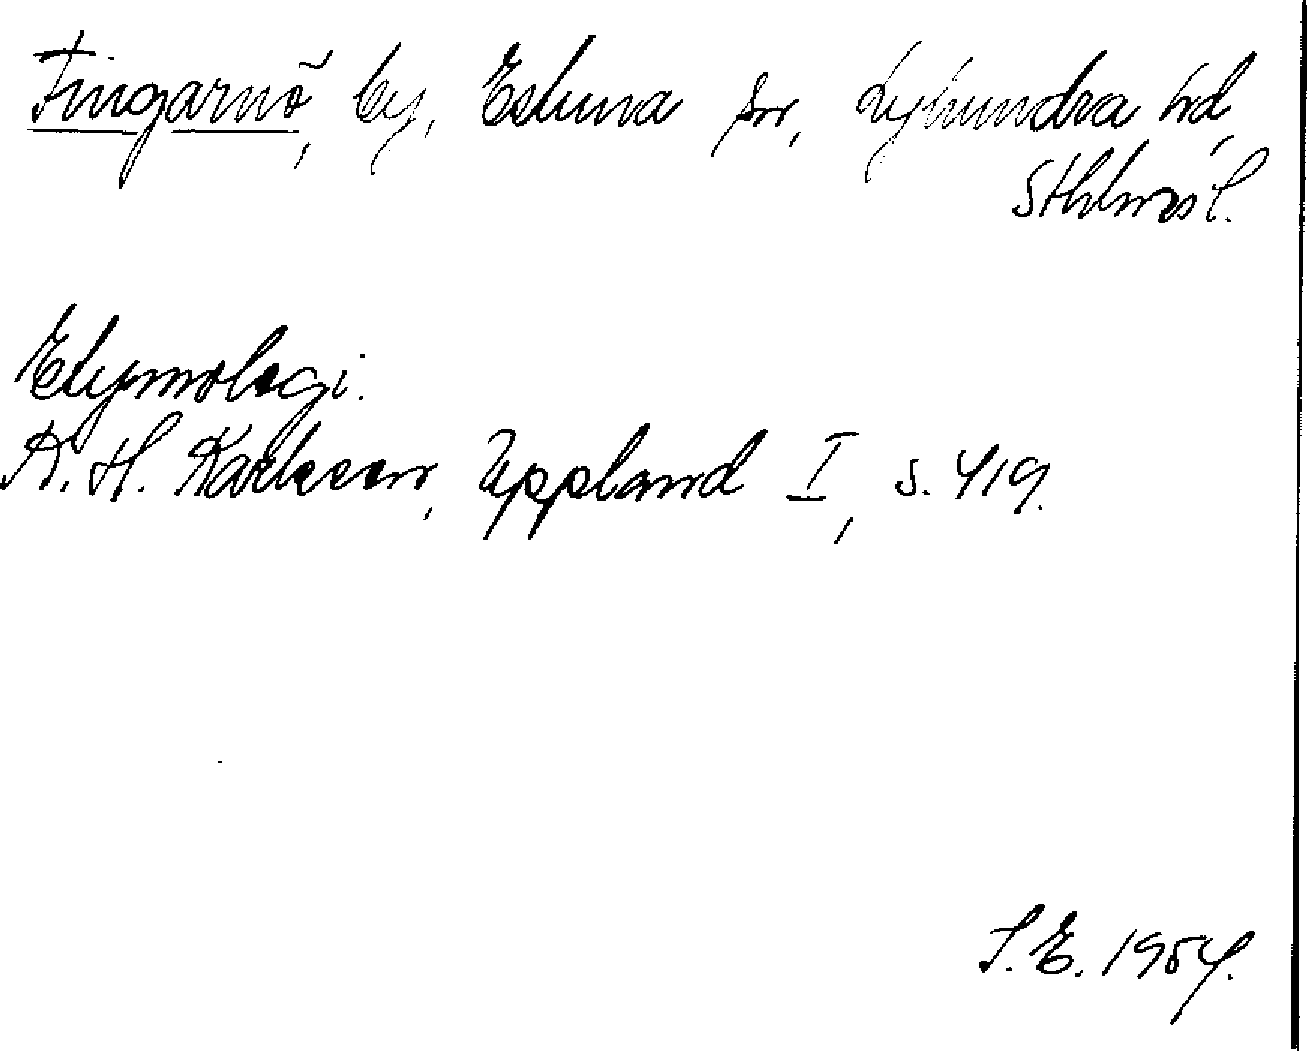 Fingarnö, by, Estuna sn, Lyhundra hd,
Sthlms l.
Etymologi.
K. H. Karlsson, Uppland I, s. 419.
S. E. 1954.